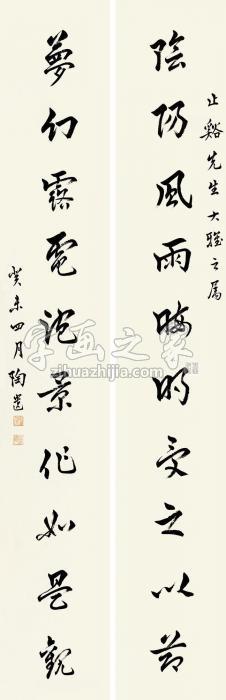 止谿先生大雅之屬
陰陽風雨晦明受之以節
夢幻露電泡景作如是觀
癸未四月陶
字画之家
www.zihuazhijia.com